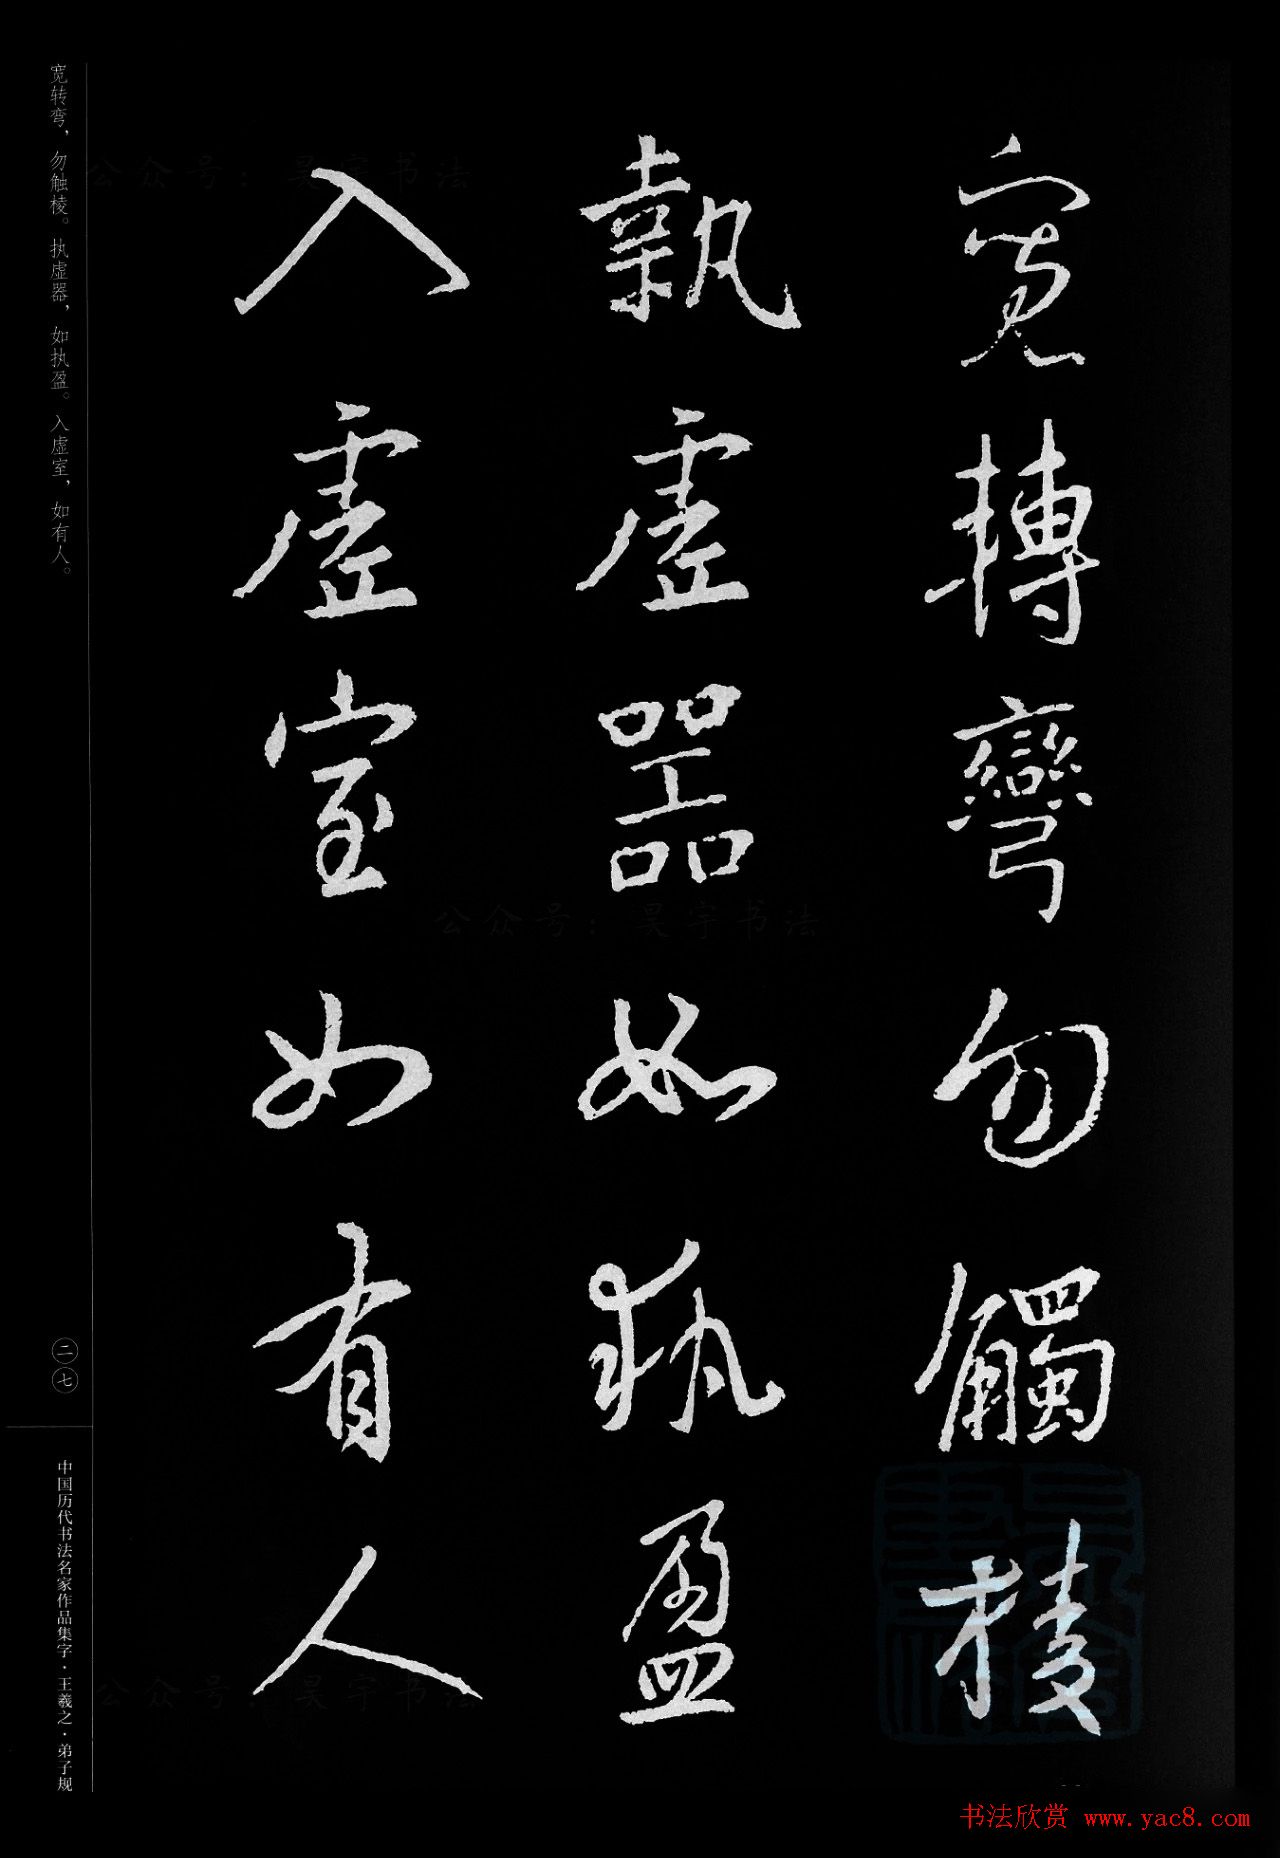 寬轉彎勿觸棱
執虛器如執盈
入虛室如有人
宽转弯，勿触棱。执虚器，如执盈。入虚室，如有人。
二七
中国历代书法名家作品集字·王羲之·弟子规
公众号：昊宇书法
公众号：昊宇书法
公众号：昊宇书法
书法欣赏 www.yac8.com